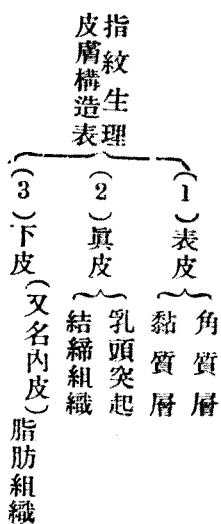 指紋生理
皮膚構造表
(1)表皮
角質層
黏質層
(2)眞皮
乳頭突起
結締組織
(3)下皮(又名內皮)脂肪組織